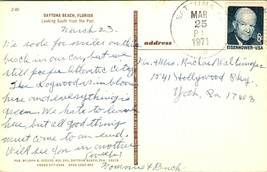 Z-49
DAYTONA BEACH, FLORIDA
Looking South from the Pier.
March 23
We rode for miles on the
beach in our car, but we
still prefer Atlantic City.
The Dogwood in bloom
here and everything is
green. We hate to leave
here, but all good things
must come to an end.
Will see you in another
Mommie &
address
MAR
25
1971
EISENHOWER·USA
Mr. & Mrs. Richard
1541 Hollywood Pkwy
York, Pa 17403